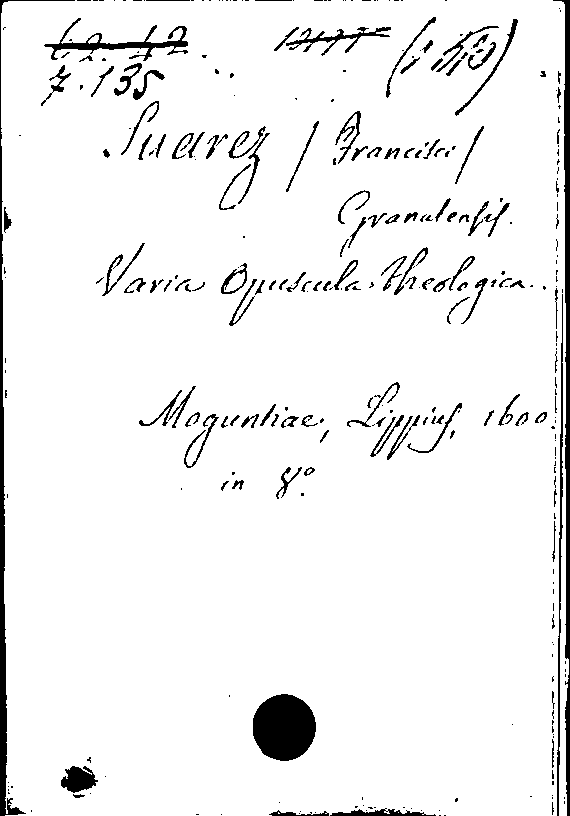 62.42
7.135
Suarez / Francisci /
Granatensis.
Varia Opuscula Theologica.
Moguntiae, Lippius, 1600.
in 8°.